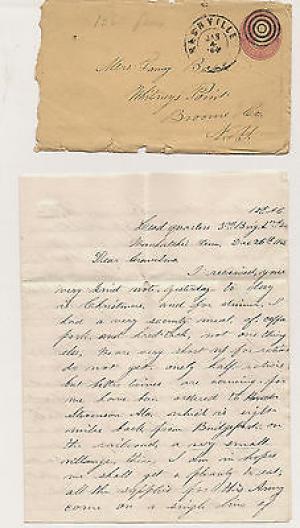 NASHVILLE
JAN
Mrs Fanny
Whitneys Point
Broome Co.
N.Y.
Head quarters 3rd Brig 1st
Wauhatchie Tenn, Dec 26th
Dear Grandma
I received your
very kind note yesterday to day
is Christmas, and for dinner I
had a very scanty meal, of coffee
pork, and hard tack, not one thing
else, we are very short up for rations
do not get only half rations
but better times are coming for
we have been ordered to
Stevenson Ala which is eight
miles back from Bridgeport on
the railroad, a very small
village, then I am in hopes
we shall get a plenty to eat,
all the supplies for this Army
come on a single line of